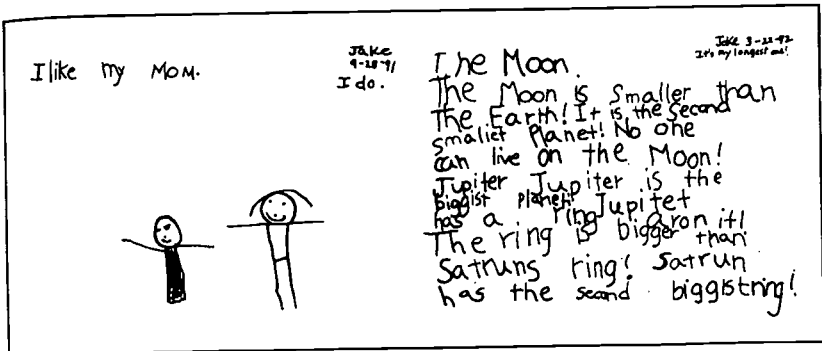 I like my Mom.
Jake
9-28-91
I do.
Jake 3-22-92
It's my longest one!
The Moon.
The Moon is Smaller than
The Earth! It is the Second
smaliet Planet! No one
can live on the Moon!
Jupiter Jupiter is the
biggist planet!
has a ring Jupitet
aron it!
The ring is bigger than
Satruns ring! Satrun
has the second biggist ring!